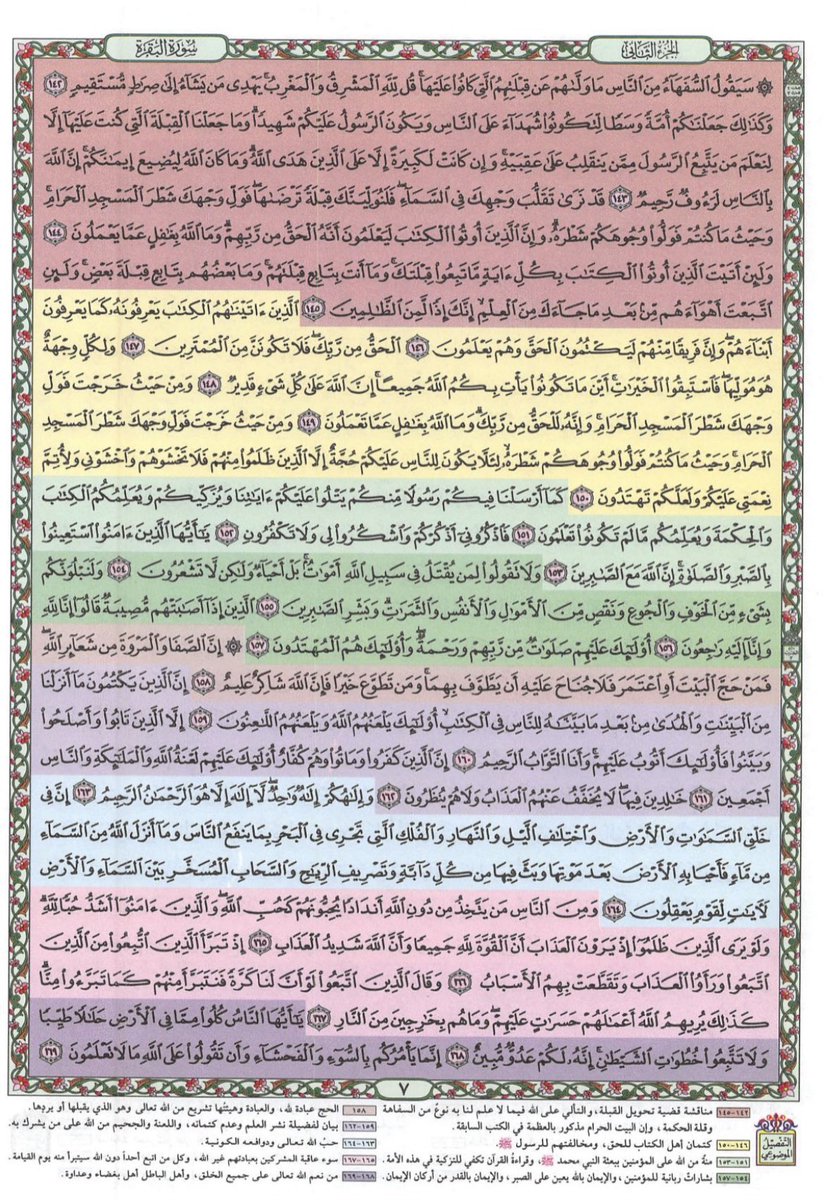 الجزء الثاني
سورة البقرة
۞ سَيَقُولُ السُّفَهَاءُ مِنَ النَّاسِ مَا وَلَّىٰهُمْ عَن قِبْلَتِهِمُ الَّتِي كَانُوا عَلَيْهَا ۚ قُل لِّلَّهِ الْمَشْرِقُ وَالْمَغْرِبُ ۚ يَهْدِي مَن يَشَاءُ إِلَىٰ صِرَٰطٍ مُّسْتَقِيمٍ ١٤٢
وَكَذَٰلِكَ جَعَلْنَٰكُمْ أُمَّةً وَسَطًا لِّتَكُونُوا شُهَدَاءَ عَلَى النَّاسِ وَيَكُونَ الرَّسُولُ عَلَيْكُمْ شَهِيدًا ۗ وَمَا جَعَلْنَا الْقِبْلَةَ الَّتِي كُنتَ عَلَيْهَا إِلَّا
لِنَعْلَمَ مَن يَتَّبِعُ الرَّسُولَ مِمَّن يَنقَلِبُ عَلَىٰ عَقِبَيْهِ ۚ وَإِن كَانَتْ لَكَبِيرَةً إِلَّا عَلَى الَّذِينَ هَدَى اللَّهُ ۗ وَمَا كَانَ اللَّهُ لِيُضِيعَ إِيمَٰنَكُمْ ۚ إِنَّ اللَّهَ
بِالنَّاسِ لَرَءُوفٌ رَّحِيمٌ ١٤٣ قَدْ نَرَىٰ تَقَلُّبَ وَجْهِكَ فِي السَّمَاءِ ۖ فَلَنُوَلِّيَنَّكَ قِبْلَةً تَرْضَىٰهَا ۚ فَوَلِّ وَجْهَكَ شَطْرَ الْمَسْجِدِ الْحَرَامِ ۚ
وَحَيْثُ مَا كُنتُمْ فَوَلُّوا وُجُوهَكُمْ شَطْرَهُ ۗ وَإِنَّ الَّذِينَ أُوتُوا الْكِتَٰبَ لَيَعْلَمُونَ أَنَّهُ الْحَقُّ مِن رَّبِّهِمْ ۗ وَمَا اللَّهُ بِغَٰفِلٍ عَمَّا يَعْمَلُونَ ١٤٤
وَلَئِنْ أَتَيْتَ الَّذِينَ أُوتُوا الْكِتَٰبَ بِكُلِّ ءَايَةٍ مَّا تَبِعُوا قِبْلَتَكَ ۚ وَمَا أَنتَ بِتَابِعٍ قِبْلَتَهُمْ ۚ وَمَا بَعْضُهُم بِتَابِعٍ قِبْلَةَ بَعْضٍ ۚ وَلَئِنِ
اتَّبَعْتَ أَهْوَاءَهُم مِّن بَعْدِ مَا جَاءَكَ مِنَ الْعِلْمِ ۙ إِنَّكَ إِذًا لَّمِنَ الظَّٰلِمِينَ ١٤٥ الَّذِينَ ءَاتَيْنَٰهُمُ الْكِتَٰبَ يَعْرِفُونَهُ كَمَا يَعْرِفُونَ
أَبْنَاءَهُمْ ۖ وَإِنَّ فَرِيقًا مِّنْهُمْ لَيَكْتُمُونَ الْحَقَّ وَهُمْ يَعْلَمُونَ ١٤٦ الْحَقُّ مِن رَّبِّكَ ۖ فَلَا تَكُونَنَّ مِنَ الْمُمْتَرِينَ ١٤٧ وَلِكُلٍّ وِجْهَةٌ
هُوَ مُوَلِّيهَا ۖ فَاسْتَبِقُوا الْخَيْرَٰتِ ۚ أَيْنَ مَا تَكُونُوا يَأْتِ بِكُمُ اللَّهُ جَمِيعًا ۚ إِنَّ اللَّهَ عَلَىٰ كُلِّ شَيْءٍ قَدِيرٌ ١٤٨ وَمِنْ حَيْثُ خَرَجْتَ فَوَلِّ
وَجْهَكَ شَطْرَ الْمَسْجِدِ الْحَرَامِ ۖ وَإِنَّهُ لَلْحَقُّ مِن رَّبِّكَ ۗ وَمَا اللَّهُ بِغَٰفِلٍ عَمَّا تَعْمَلُونَ ١٤٩ وَمِنْ حَيْثُ خَرَجْتَ فَوَلِّ وَجْهَكَ شَطْرَ الْمَسْجِدِ
الْحَرَامِ ۚ وَحَيْثُ مَا كُنتُمْ فَوَلُّوا وُجُوهَكُمْ شَطْرَهُ لِئَلَّا يَكُونَ لِلنَّاسِ عَلَيْكُمْ حُجَّةٌ إِلَّا الَّذِينَ ظَلَمُوا مِنْهُمْ فَلَا تَخْشَوْهُمْ وَاخْشَوْنِي وَلِأُتِمَّ
نِعْمَتِي عَلَيْكُمْ وَلَعَلَّكُمْ تَهْتَدُونَ ١٥٠ كَمَا أَرْسَلْنَا فِيكُمْ رَسُولًا مِّنكُمْ يَتْلُوا عَلَيْكُمْ ءَايَٰتِنَا وَيُزَكِّيكُمْ وَيُعَلِّمُكُمُ الْكِتَٰبَ
وَالْحِكْمَةَ وَيُعَلِّمُكُم مَّا لَمْ تَكُونُوا تَعْلَمُونَ ١٥١ فَاذْكُرُونِي أَذْكُرْكُمْ وَاشْكُرُوا لِي وَلَا تَكْفُرُونِ ١٥٢ يَٰأَيُّهَا الَّذِينَ ءَامَنُوا اسْتَعِينُوا
بِالصَّبْرِ وَالصَّلَوٰةِ ۚ إِنَّ اللَّهَ مَعَ الصَّٰبِرِينَ ١٥٣ وَلَا تَقُولُوا لِمَن يُقْتَلُ فِي سَبِيلِ اللَّهِ أَمْوَٰتٌ ۚ بَلْ أَحْيَاءٌ وَلَٰكِن لَّا تَشْعُرُونَ ١٥٤ وَلَنَبْلُوَنَّكُم
بِشَيْءٍ مِّنَ الْخَوْفِ وَالْجُوعِ وَنَقْصٍ مِّنَ الْأَمْوَٰلِ وَالْأَنفُسِ وَالثَّمَرَٰتِ ۗ وَبَشِّرِ الصَّٰبِرِينَ ١٥٥ الَّذِينَ إِذَا أَصَٰبَتْهُم مُّصِيبَةٌ قَالُوا إِنَّا لِلَّهِ
وَإِنَّا إِلَيْهِ رَٰجِعُونَ ١٥٦ أُولَٰئِكَ عَلَيْهِمْ صَلَوَٰتٌ مِّن رَّبِّهِمْ وَرَحْمَةٌ ۖ وَأُولَٰئِكَ هُمُ الْمُهْتَدُونَ ١٥٧ ۞ إِنَّ الصَّفَا وَالْمَرْوَةَ مِن شَعَائِرِ اللَّهِ ۖ
فَمَنْ حَجَّ الْبَيْتَ أَوِ اعْتَمَرَ فَلَا جُنَاحَ عَلَيْهِ أَن يَطَّوَّفَ بِهِمَا ۚ وَمَن تَطَوَّعَ خَيْرًا فَإِنَّ اللَّهَ شَاكِرٌ عَلِيمٌ ١٥٨ إِنَّ الَّذِينَ يَكْتُمُونَ مَا أَنزَلْنَا
مِنَ الْبَيِّنَٰتِ وَالْهُدَىٰ مِن بَعْدِ مَا بَيَّنَّٰهُ لِلنَّاسِ فِي الْكِتَٰبِ ۙ أُولَٰئِكَ يَلْعَنُهُمُ اللَّهُ وَيَلْعَنُهُمُ اللَّٰعِنُونَ ١٥٩ إِلَّا الَّذِينَ تَابُوا وَأَصْلَحُوا
وَبَيَّنُوا فَأُولَٰئِكَ أَتُوبُ عَلَيْهِمْ ۚ وَأَنَا التَّوَّابُ الرَّحِيمُ ١٦٠ إِنَّ الَّذِينَ كَفَرُوا وَمَاتُوا وَهُمْ كُفَّارٌ أُولَٰئِكَ عَلَيْهِمْ لَعْنَةُ اللَّهِ وَالْمَلَٰئِكَةِ وَالنَّاسِ
أَجْمَعِينَ ١٦١ خَٰلِدِينَ فِيهَا ۖ لَا يُخَفَّفُ عَنْهُمُ الْعَذَابُ وَلَا هُمْ يُنظَرُونَ ١٦٢ وَإِلَٰهُكُمْ إِلَٰهٌ وَٰحِدٌ ۖ لَّا إِلَٰهَ إِلَّا هُوَ الرَّحْمَٰنُ الرَّحِيمُ ١٦٣ إِنَّ فِي
خَلْقِ السَّمَٰوَٰتِ وَالْأَرْضِ وَاخْتِلَٰفِ الَّيْلِ وَالنَّهَارِ وَالْفُلْكِ الَّتِي تَجْرِي فِي الْبَحْرِ بِمَا يَنفَعُ النَّاسَ وَمَا أَنزَلَ اللَّهُ مِنَ السَّمَاءِ
مِن مَّاءٍ فَأَحْيَا بِهِ الْأَرْضَ بَعْدَ مَوْتِهَا وَبَثَّ فِيهَا مِن كُلِّ دَابَّةٍ وَتَصْرِيفِ الرِّيَٰحِ وَالسَّحَابِ الْمُسَخَّرِ بَيْنَ السَّمَاءِ وَالْأَرْضِ
لَءَايَٰتٍ لِّقَوْمٍ يَعْقِلُونَ ١٦٤ وَمِنَ النَّاسِ مَن يَتَّخِذُ مِن دُونِ اللَّهِ أَندَادًا يُحِبُّونَهُمْ كَحُبِّ اللَّهِ ۖ وَالَّذِينَ ءَامَنُوا أَشَدُّ حُبًّا لِّلَّهِ ۗ
وَلَوْ يَرَى الَّذِينَ ظَلَمُوا إِذْ يَرَوْنَ الْعَذَابَ أَنَّ الْقُوَّةَ لِلَّهِ جَمِيعًا وَأَنَّ اللَّهَ شَدِيدُ الْعَذَابِ ١٦٥ إِذْ تَبَرَّأَ الَّذِينَ اتُّبِعُوا مِنَ الَّذِينَ
اتَّبَعُوا وَرَأَوُا الْعَذَابَ وَتَقَطَّعَتْ بِهِمُ الْأَسْبَابُ ١٦٦ وَقَالَ الَّذِينَ اتَّبَعُوا لَوْ أَنَّ لَنَا كَرَّةً فَنَتَبَرَّأَ مِنْهُمْ كَمَا تَبَرَّءُوا مِنَّا ۗ
كَذَٰلِكَ يُرِيهِمُ اللَّهُ أَعْمَٰلَهُمْ حَسَرَٰتٍ عَلَيْهِمْ ۖ وَمَا هُم بِخَٰرِجِينَ مِنَ النَّارِ ١٦٧ يَٰأَيُّهَا النَّاسُ كُلُوا مِمَّا فِي الْأَرْضِ حَلَٰلًا طَيِّبًا
وَلَا تَتَّبِعُوا خُطُوَٰتِ الشَّيْطَٰنِ ۚ إِنَّهُ لَكُمْ عَدُوٌّ مُّبِينٌ ١٦٨ إِنَّمَا يَأْمُرُكُم بِالسُّوءِ وَالْفَحْشَاءِ وَأَن تَقُولُوا عَلَى اللَّهِ مَا لَا تَعْلَمُونَ ١٦٩
٧
التفصيل الموضوعي
١٤٢-١٤٥ مناقشة قضية تحويل القبلة، والتألي على الله فيما لا علم لنا به نوع من السفاهة
وقلة الحكمة، وإن البيت الحرام مذكور بالعظمة في الكتب السابقة.
١٤٦-١٥٠ كتمان أهل الكتاب للحق، ومخالفتهم للرسول ﷺ.
١٥١-١٥٣ منة من الله على المؤمنين ببعثة النبي محمد ﷺ، وقراءة القرآن تكفي للتزكية في هذه الأمة.
١٥٤-١٥٧ بشارات ربانية للمؤمنين، والإيمان بالله يعين على الصبر، والإيمان بالقدر من أركان الإيمان.
١٥٨ الحج عبادة لله، والعبادة وهيئتها تشريع من الله تعالى وهو الذي يقبلها أو يردها.
١٥٩-١٦٢ بيان لفضيلة نشر العلم وعدم كتمانه، واللعنة والجحيم من الله على من يشرك به.
١٦٣-١٦٤ حب الله تعالى ودوافعه الكونية.
١٦٥-١٦٧ سوء عاقبة المشركين بعبادتهم غير الله، وكل من اتبع أحداً دون الله سيتبرأ منه يوم القيامة.
١٦٨-١٦٩ من نعم الله تعالى على جميع الخلق، وأهل الباطل أهل بغضاء وعداوة.